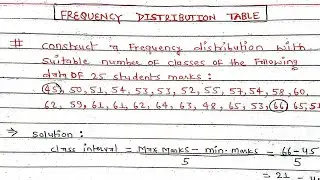 FREQUENCY DISTRIBUTION TABLE
# Construct a frequency distribution with
suitable number of classes of the following
data OF 25 students marks :
45, 50, 51, 54, 53, 53, 52, 55, 57, 54, 58, 60,
62, 59, 61, 61, 62, 64, 63, 48, 65, 53, 66, 65, 51
⇒ Solution :
class interval = Max Marks - min. Marks = 66-45
5 5
= 21